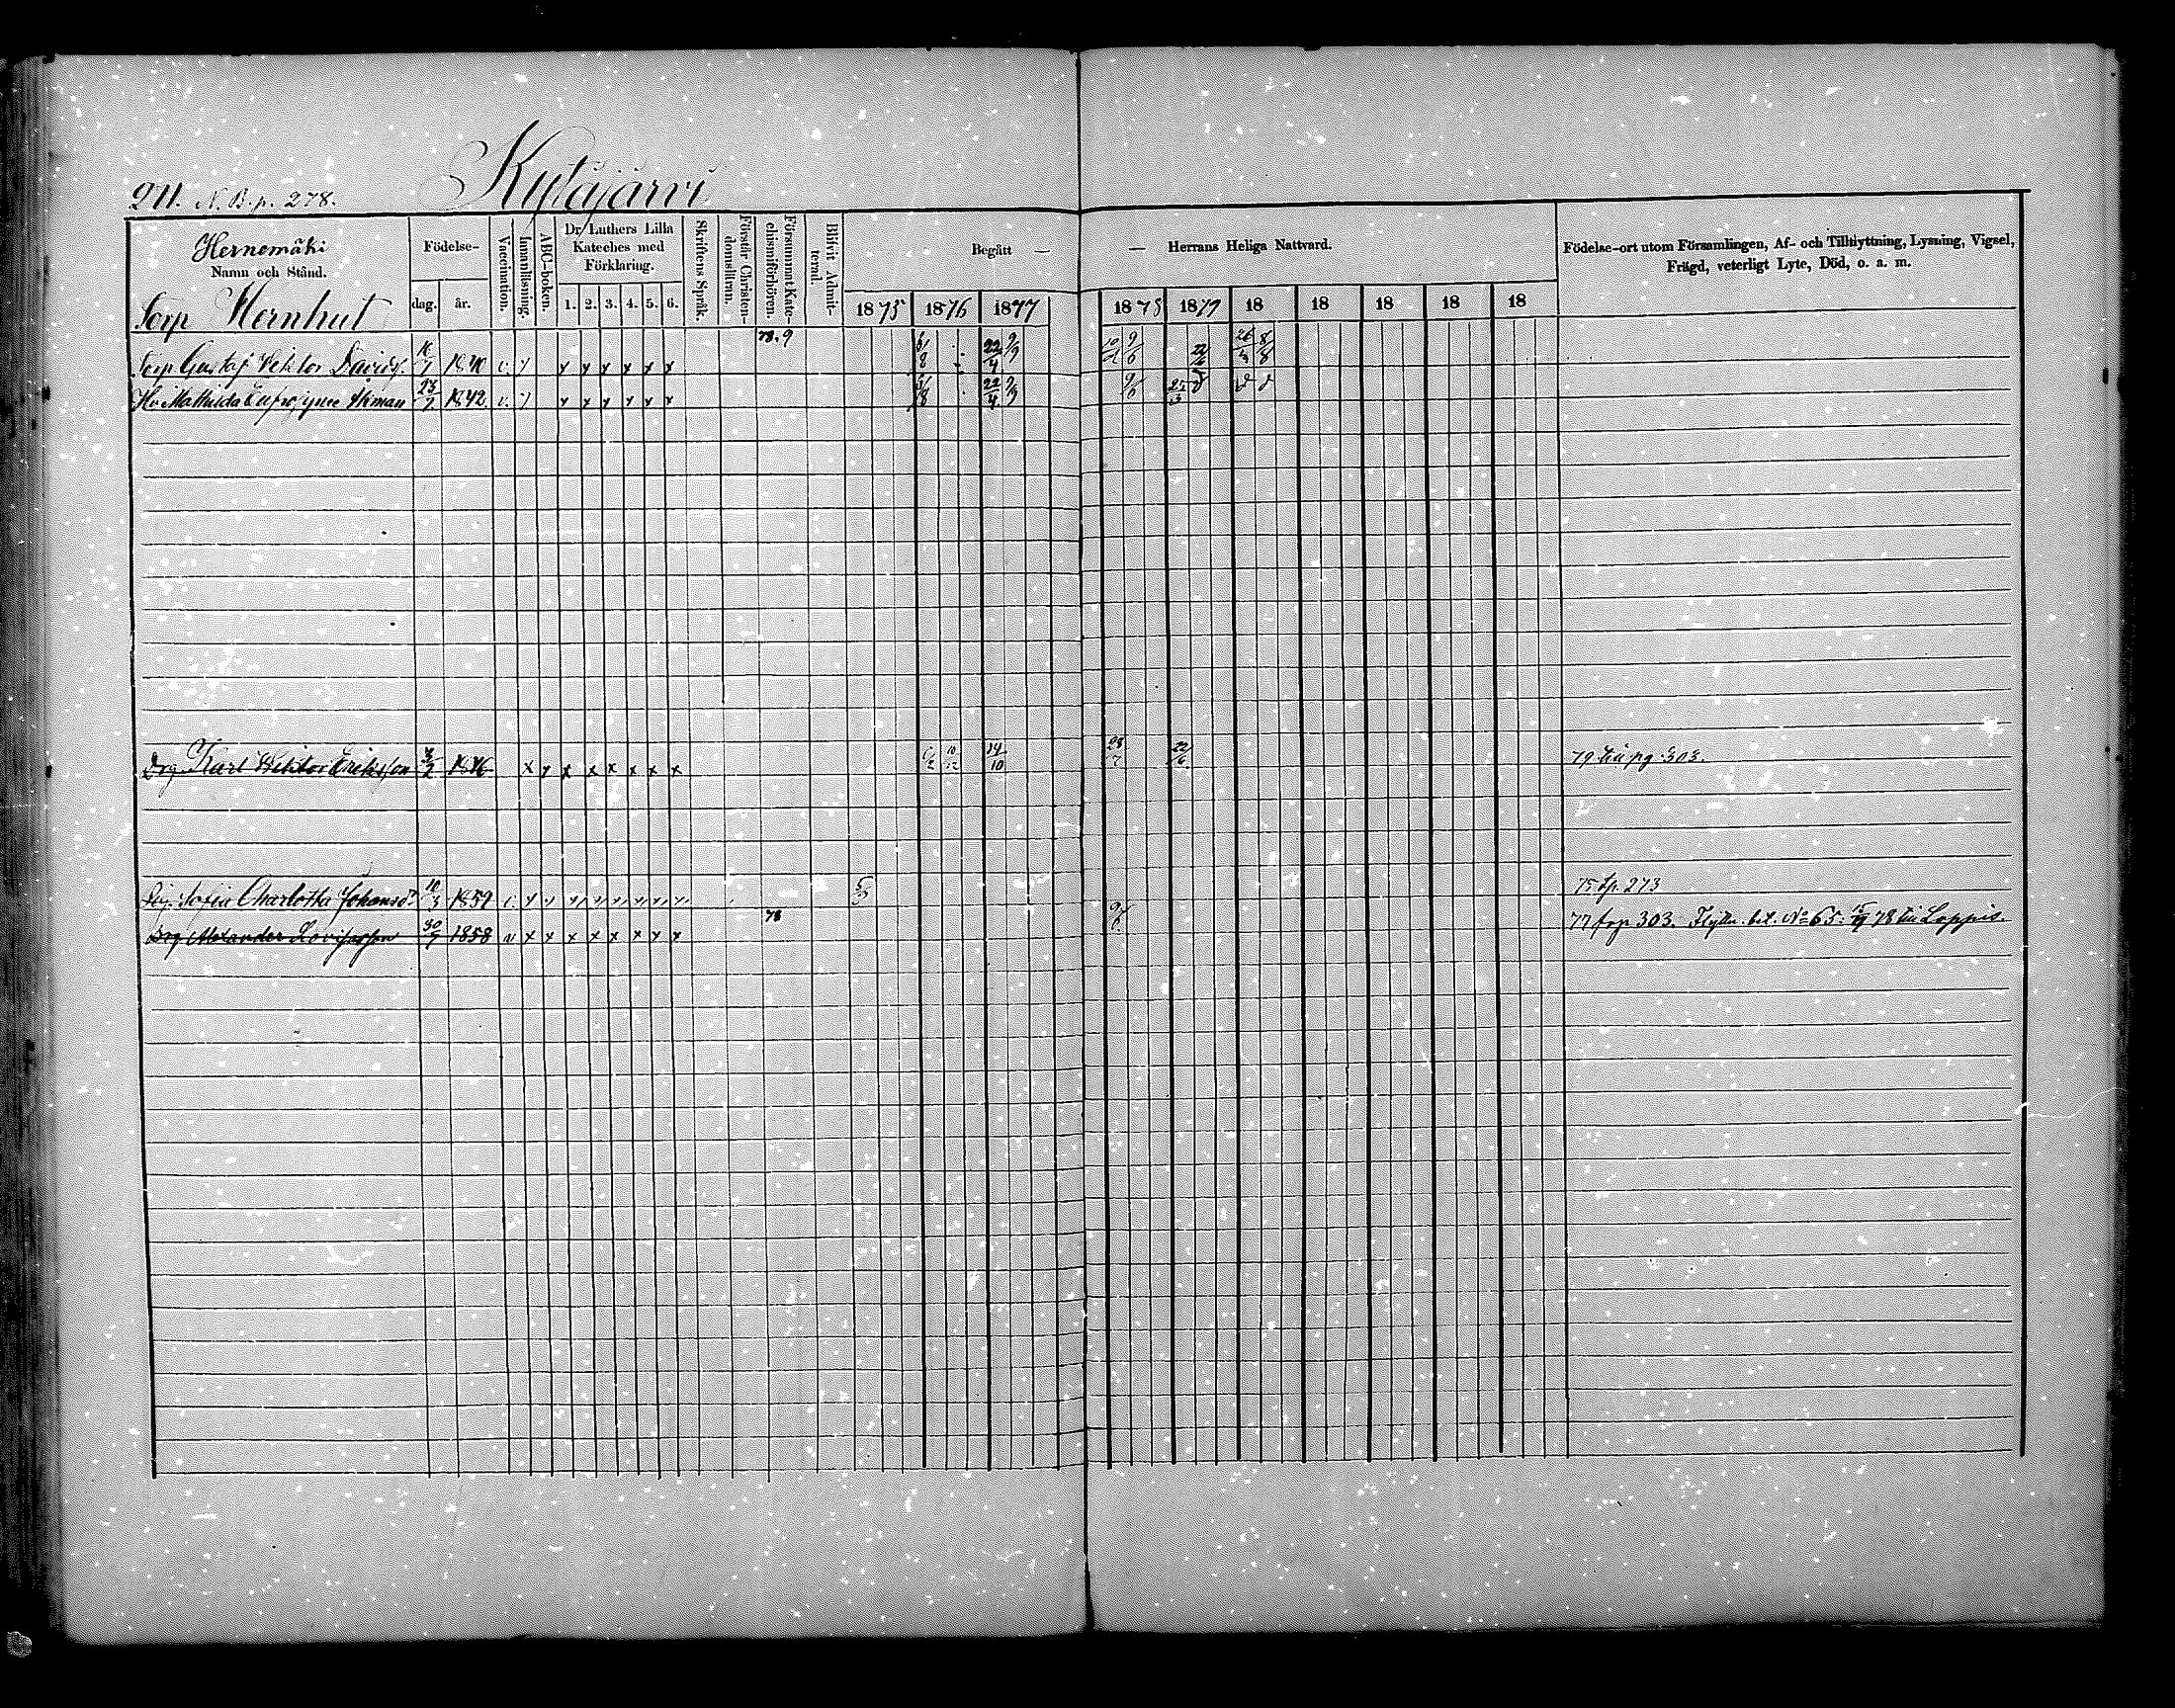 211. N. B. p. 278. Kytäjärvi
Hernemäki
Namn och Stånd.
Torp Hernhut
Födelse-
dag. år.
Vaccination.
Innanläsning.
ABC-boken.
Dr Luthers Lilla Kateches med Förklaring.
1. 2. 3. 4. 5. 6.
Skriftens Språk.
Förstår Christendomsläran.
Försummat Katechismiförhören.
Blifvit Admitterad.
Begått — — Herrans Heliga Nattvard.
1875 1876 1877 1878 1879 18 18 18 18 18
Födelse-ort utom Församlingen, Af- och Tillflyttning, Lysning, Vigsel,
Frägd, veterligt Lyte, Död, o. a. m.
78. 9
Torp. Gustaf Viktor Davids. 1840 v. x x x x x x 22/4 9/9 10/2 9/6 22/6 8/8
Hu Mathilda Eufrosyne Åkman 23/7 1842 v. x x x x x x 22/4 9/9 9/6 25/3
Drg. Karl Wiktor Eriksson 1846 x x x x x x x x 10/12 14/10 28/7 22/6 79 till pg. 303.
Pig. Sofia Charlotta Johansd. 10/3 1859 v. 75 t.p. 273
Drg Alexander Lovisasson 30/7 1858 x x x x x x x x 78 9/6 77 fr p 303. Flyttn. bet. No 65 78 till Loppis.